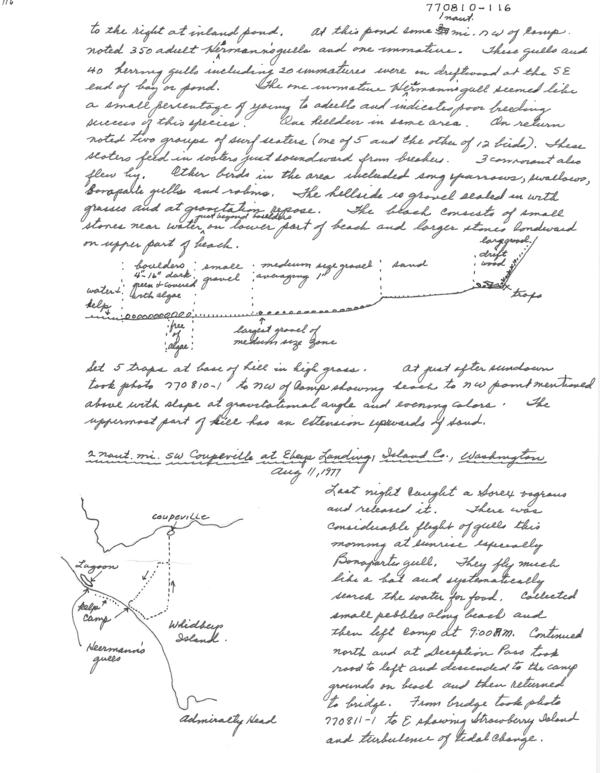 116
770810-116
to the right at inland pond. At this pond some 1 naut. mi. NW of Camp
noted 350 adult Heermann's gulls and one immature. These gulls and
40 herring gulls including 20 immatures were on driftwood at the SE
end of bay or pond. The one immature Heermann's gull seemed like
a small percentage of young to adults and indicates poor breeding
success of this species. One killdeer in same area. On return
noted two groups of surf scoters (one of 5 and the other of 12 birds). These
scoters feed in waters just soundward from breakers. 3 cormorant also
flew by. Other birds in the area included song sparrows, swallows,
Bonaparte gulls and robins. The hillside is gravel sealed in with
grasses and at gravitation repose. The beach consists of small
stones near water, just beyond boulders on lower part of beach and larger stones landward
on upper part of beach.
water +
kelp
boulders
4"-16" dark
green & covered
with algae
free
of
algae
small
gravel
medium size gravel
averaging 1"
largest gravel of
medium size zone
sand
large wood
drift
wood
traps
Set 5 traps at base of hill in high grass. At just after sundown
took photo 770810-1 to NW of Camp showing beach to NW point mentioned
above with slope at gravitational angle and evening colors. The
uppermost part of hill has an extension upwards of sand.
2 naut. mi. SW Coupeville at Ebeys Landing, Island Co., Washington
Aug 11, 1977
Coupeville
Lagoon
kelp
Camp
Heermann's
gulls
Whidbey
Island.
Admiralty Head
Last night caught a Sorex vagrans
and released it. There was
considerable flight of gulls this
morning at sunrise especially
Bonaparte gull. They fly much
like a bat and systematically
search the water for food. Collected
small pebbles along beach and
then left camp at 9:00AM. Continued
north and at Deception Pass took
road to left and descended to the camp
grounds on beach and then returned
to bridge. From bridge took photo
770811-1 to E showing Strawberry Island
and turbulence of tidal change.